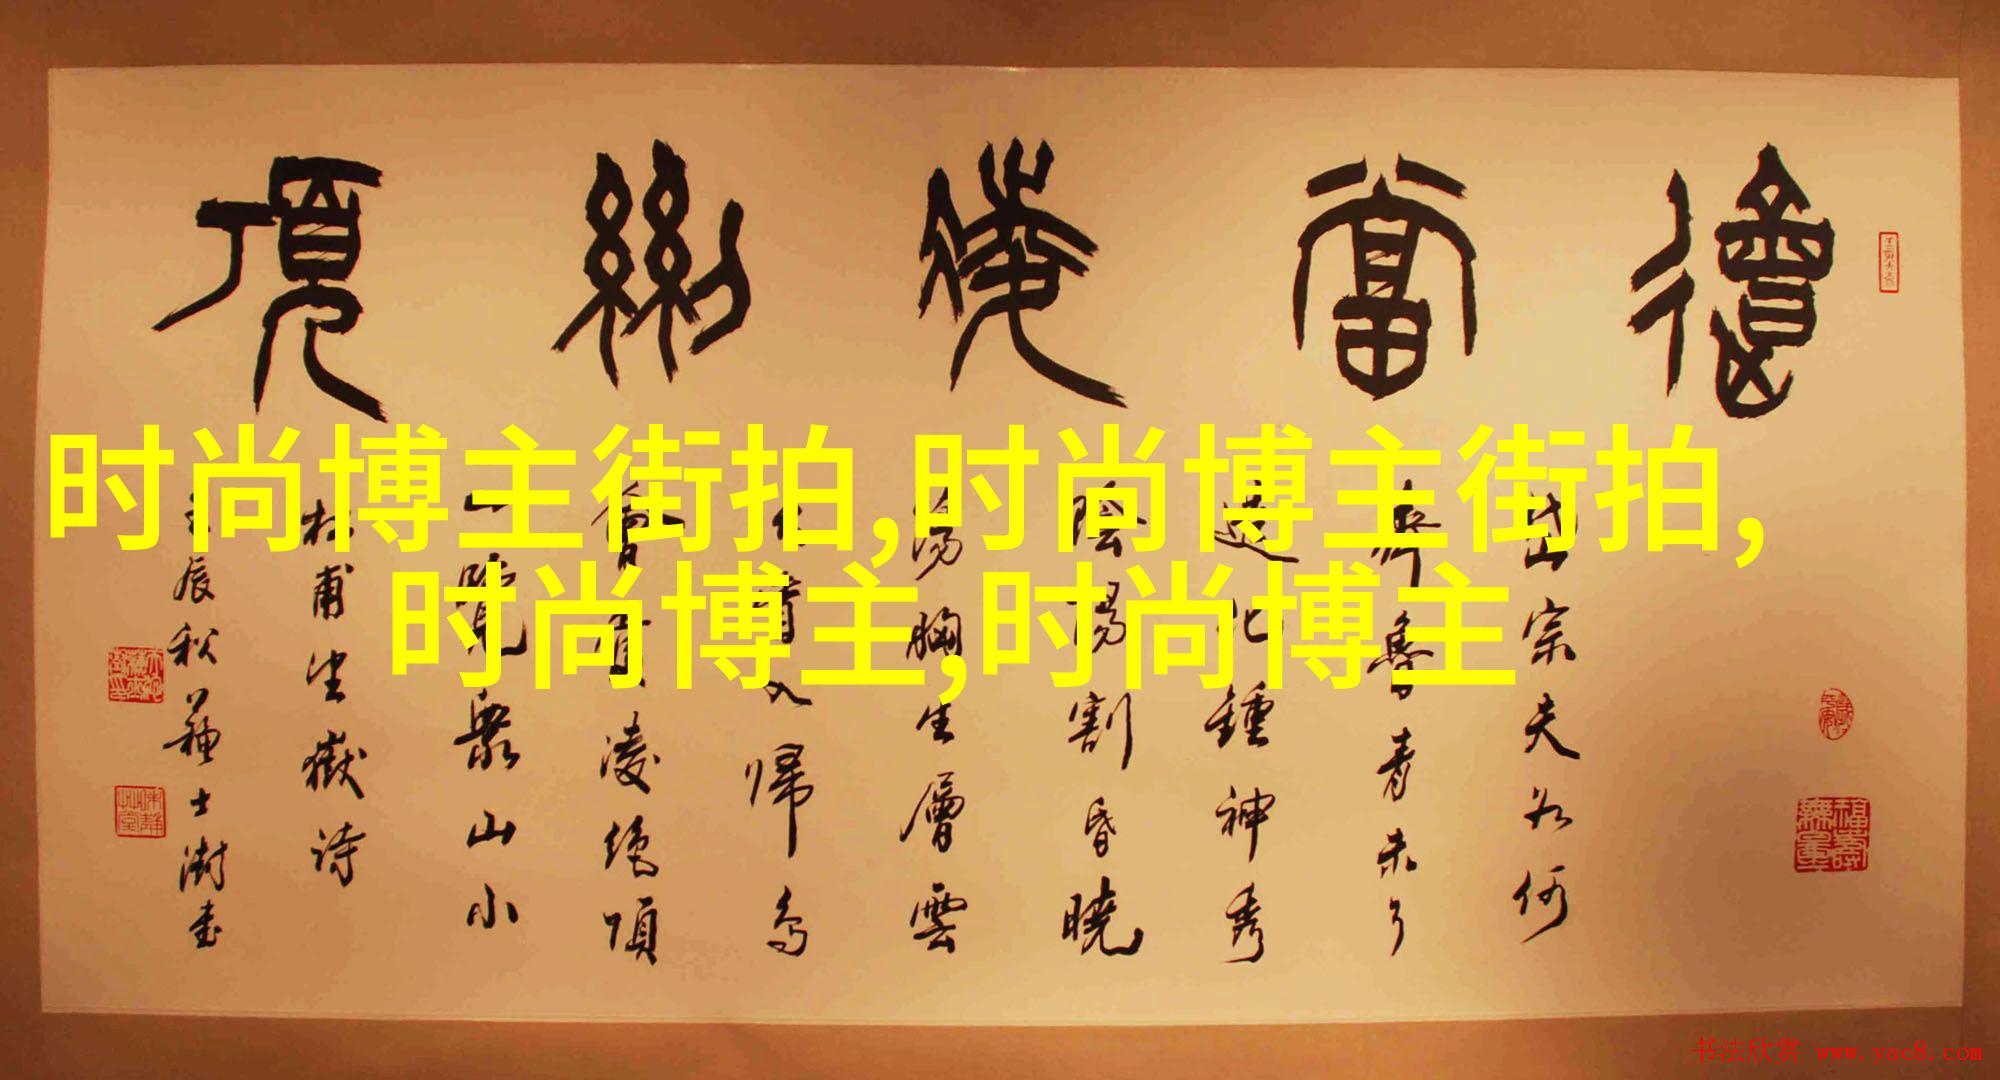 會當凌絕頂
岱宗夫如何
齊魯青未了
造化鍾神秀
陰陽割昏曉
蕩胸生層雲
決眥入歸鳥
會當凌絕頂
一覽眾山小
杜甫望嶽詩
壬辰秋蘇士澍書
福壽無量
时尚博主街拍,时尚博主街拍,
时尚博主,时尚博主
书法欣赏 www.yac8.com